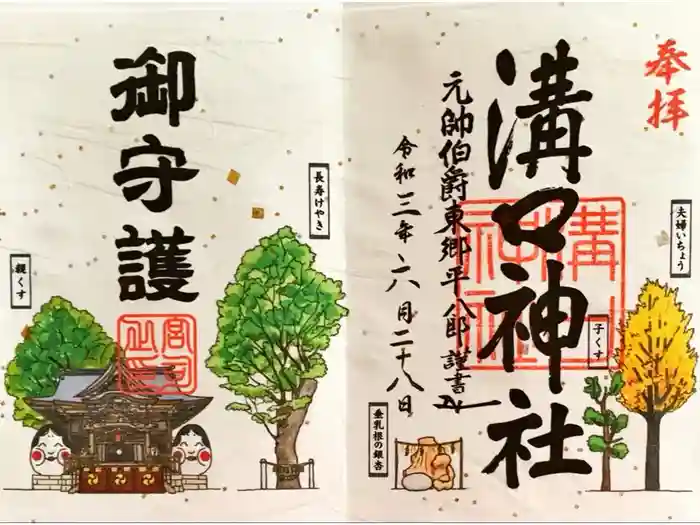 奉拝
溝口神社
元帥伯爵東郷平八郎謹書
令和三年六月二十八日
夫婦いちょう
子くす
垂乳根の銀杏
御守護
長寿けやき
親くす